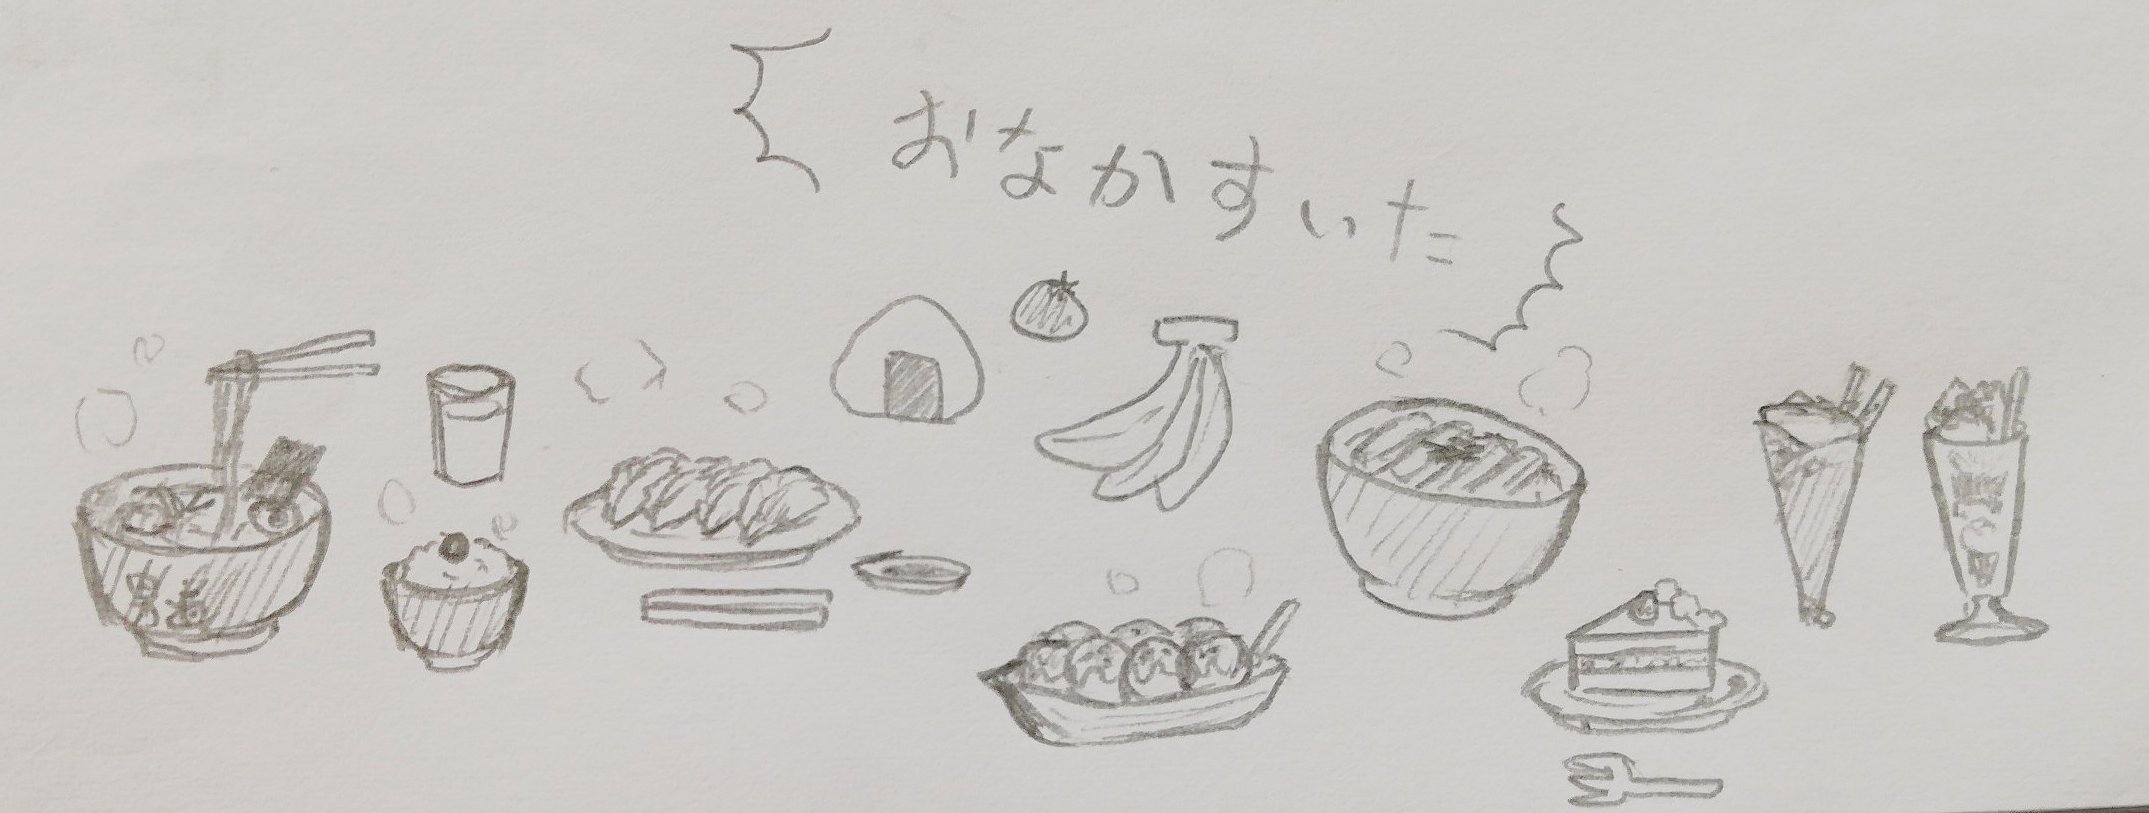 おなかすいた